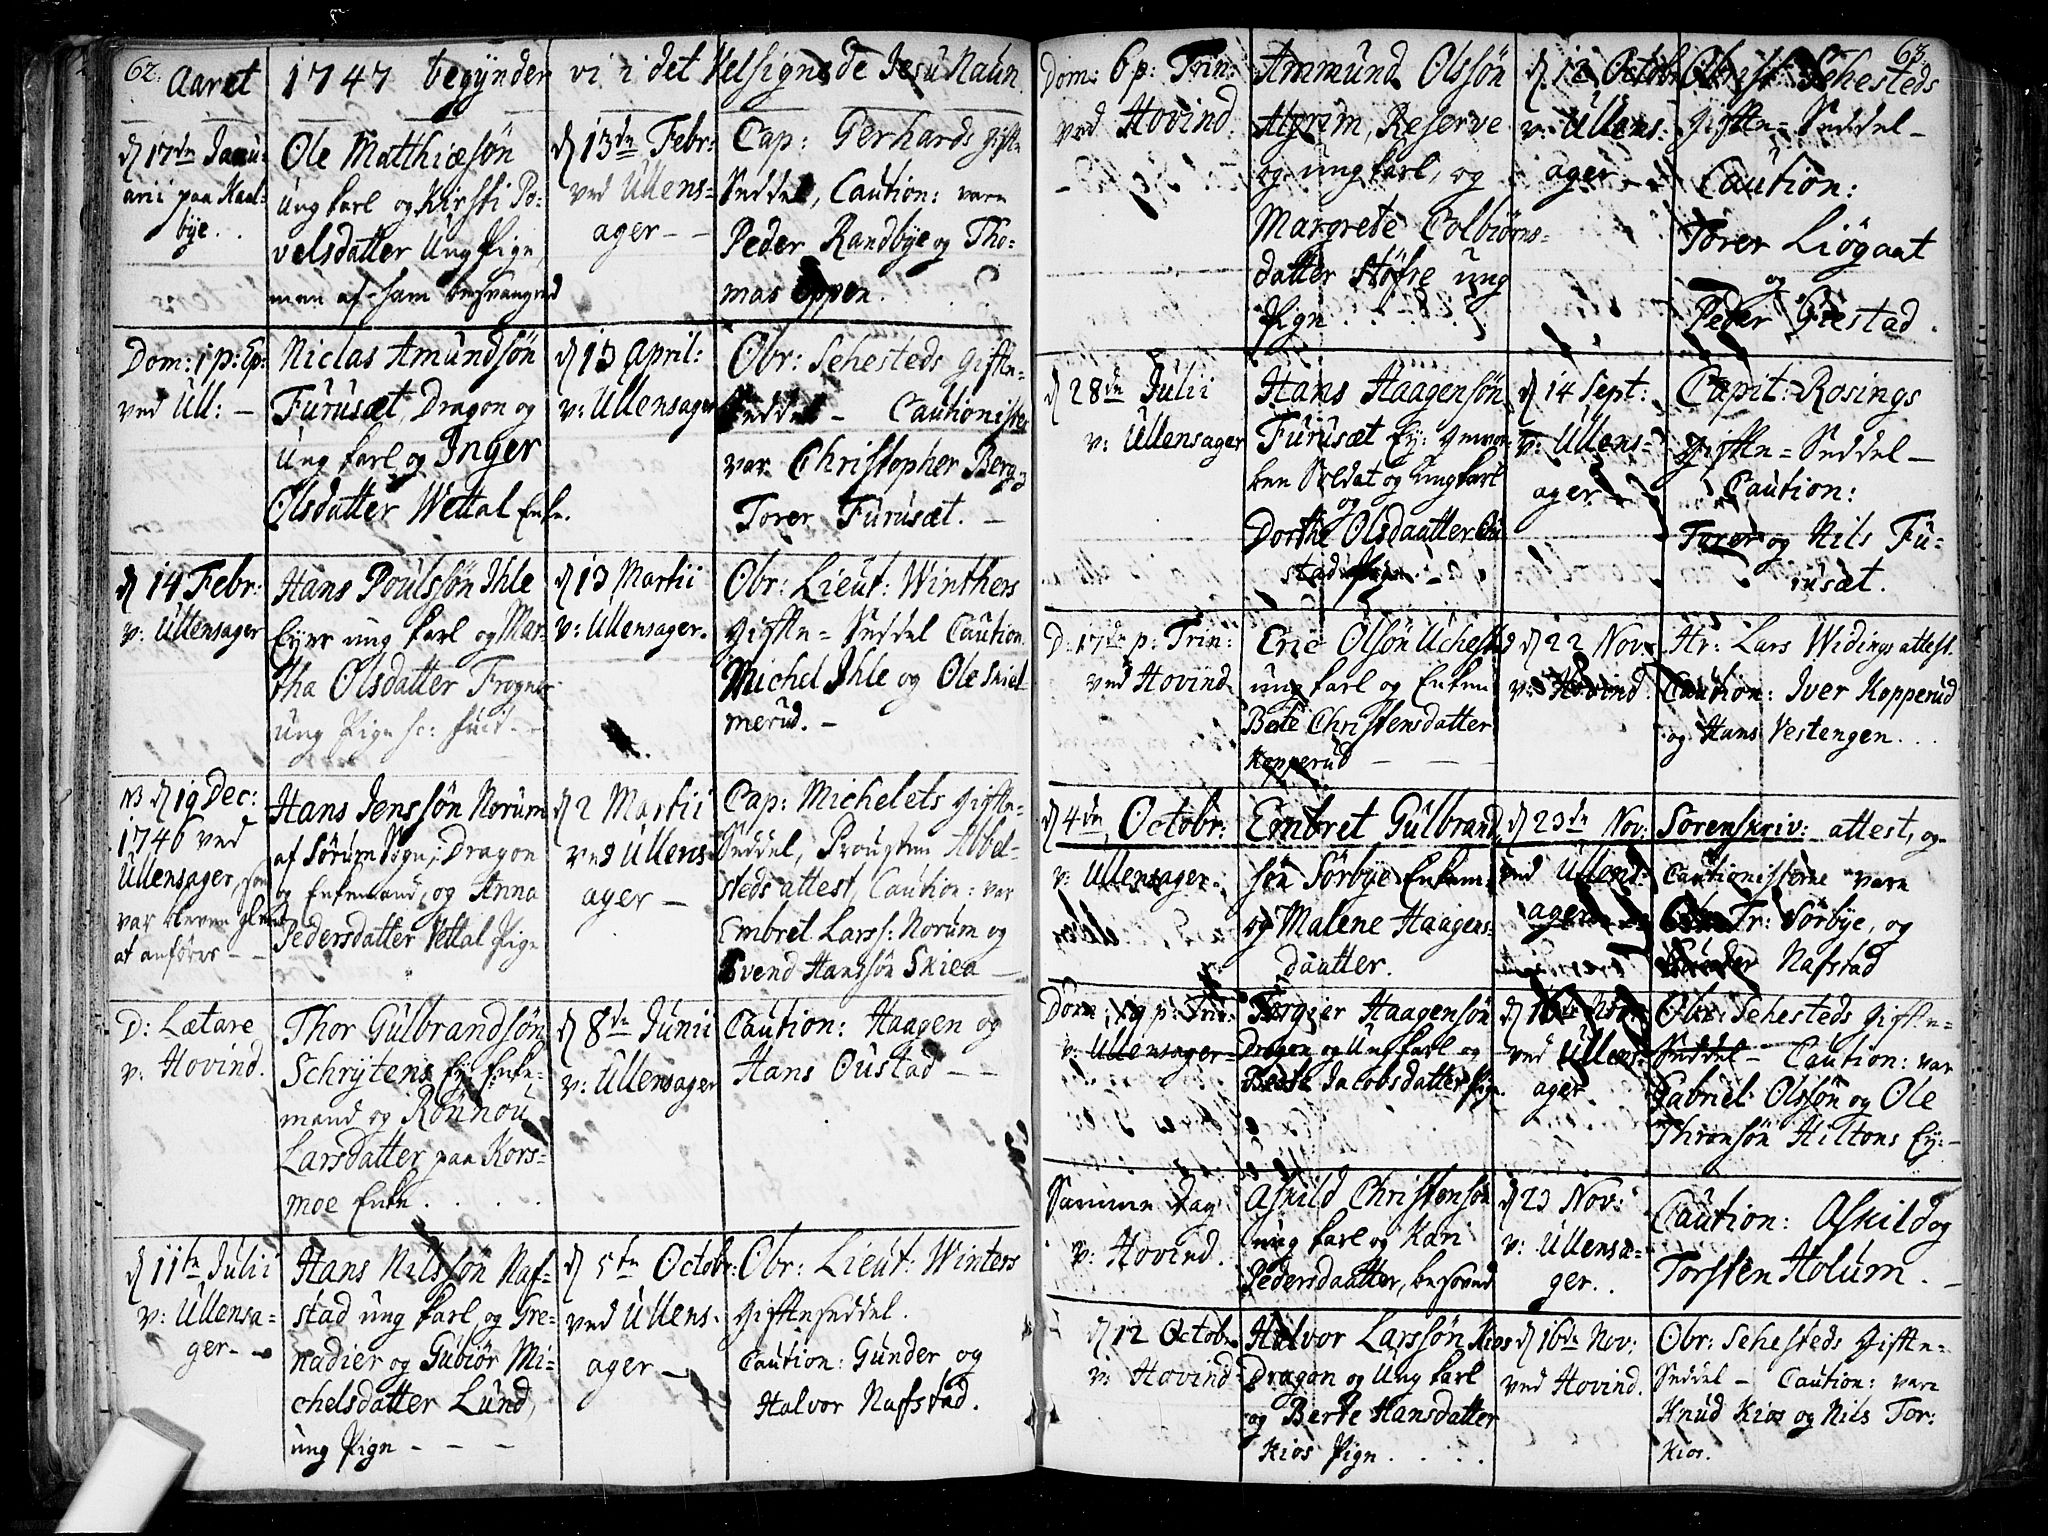 62.
Aaret 1747 begynder vi i det Velsignede Jesu Naun
d 17de Janu-
arii paa Kaal-
bye . .
Ole Matthiæsøn
Ung karl og Kirsti Po-
velsdatter Ung Pige,
men af ham besvangred
d 13de Febr:
ved Ullens-
ager - -
Cap: Gerhards gifte
Seddel, Caution: vare
Peder Randbye og Tho-
mas Eppen.
Dom: 1 p: Ep:
ved Ull: -
Niclas Amundsøn
Furusæt, Dragon og
Ung karl og Inger
Olsdatter Wettal Enke.
d 13 April:
v: Ullensager
Obr: Sehesteds gifte-
Seddel - Cautionister
var Christopher Berg
Torer Furusæt. -
d 14 Febr:
v: Ullensager
Hans Poulssøn Ihle
Eyer ung karl og Mar-
tha Olsdatter Frogner
Ung Pige sc: fuit. -
d 13 Martii
v: Ullensager.
Obr: Lieut: Winthers
Gifte= Seddel Caution
Michel Ihle og Ole Skiel-
merud. -
NB d 19 Dec:
1746 ved
Ullensager, som
var bleven glemt
at anføres - -
Hans Jenssøn Norum
af Sørum Sogn, Dragon
og Enkemand, og Anna
Pedersdatter Vettal Pige
d 2 Martii
ved Ullens-
ager -
Cap: Michelets gifte-
Seddel, Prousten Abbel-
steds attest, Caution: var
Embret Larss: Norum og
Svend Hanssøn Skiea -
D: Lætare
v: Hovind.
Thor Gulbrandsøn
Schrytens Ey: Enke-
mand og Rønnou
Larsdatter paa Kors-
moe Enke . . . .
d 8de Junii
v: Ullensager
Caution: Haagen og
Hans Oustad - -
d 11te Julii
v: Ullensa-
ger - -
Hans Nilssøn Naf-
stad ung karl, og Gre-
nadier og Gubiør Mi-
chelsdatter Lund,
ung Pige - - -
d 5te Octobr:
ved Ullens-
ager -
Obr: Lieut: Winters
Gifteseddel.
Caution: Gunder og
Halvor Nafstad.
63.
Dom: 6 p: Trin:
ved Hovind.
-
Ammund Olssøn
Algrim, Reserve
og ung karl, og
Margrete Colbiørns-
datter Støfre ung
Pige . . . .
d 12 Octobr
v: Ullens-
ager - -
Obrist Sehesteds
Gifte= Seddel -
Caution:
Torer Liøgaat
og
Peder Giestad.
d 28de Julii
v: Ullensager
Hans Haagensøn
Furusæt Ey:
ken Soldat og Ung karl
og
Dorthe Olsdaatter
stad Pige. -
d 14 Sept:
v: Ullens-
ager -
Capit: Rosings
Gifte= Seddel -
Caution:
Torer og Nils Fu-
rusæt.
D: 17de p: Trin:
ved Hovind
Eric Olsøn
ung karl og Enken
Berte Christensdatter
Kopperud - -
d 22 Nov:
v: Hovind.
Hr: Lars Widings attest.
Caution: Iver Kopperud
og Hans Vestengen . . .
d 4de Octobr:
v: Ullensager.
Embret Gulbrand
søn Sørbye Enkem:
og Malene Haagens-
daatter.
d 23de Nov:
ved Ullens-
ager
Sorenskriv: attest, og
Cautionisterne vare
Tr: Sørbye, og
Nafstad
Dom: 19 p: Trin:
v: Ullensager
Torgier Haagensøn
Dragon og Ung karl og
Berte Jacobsdatter Pige.
d 16de
ved Ullens-
ager.
Obr: Sehesteds gifte-
Seddel - Caution: var
Gabriel Olssøn og Ole
Thronsøn Hiltons Ey: -
Samme Dag
v: Hovind.
Askild Christensøn
ung karl og Kari
Pedersdaatter, besoved
d 23 Nov:
v: Ullensa-
ger. .
Caution: Askild og
Torsten Holum. -
d 12 Octobr
v: Hovind
Halvor Larssøn Kios
Dragon og Ung karl
og Berte Hansdatter
Kios Pige . . . .
d 16de Nov:
ved Hovind.
Obr: Sehesteds Gifte-
Seddel - Caution: vare
Knud Kios og Nils Tor:
Kios.